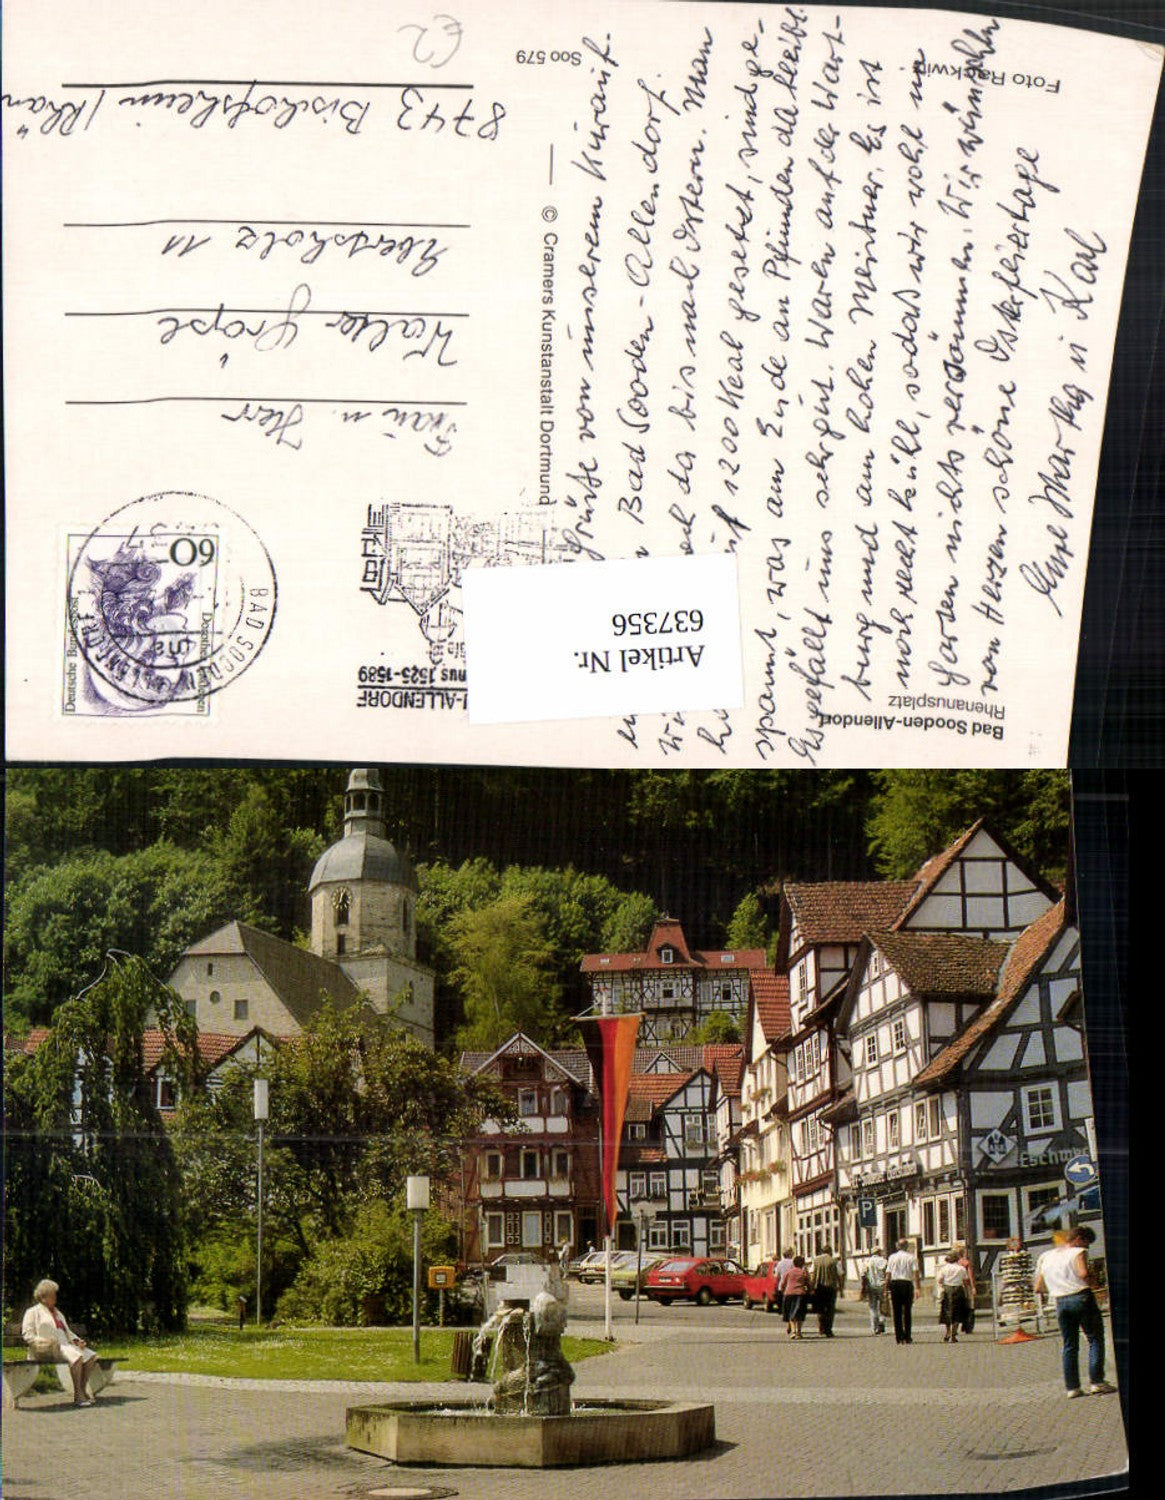 Grüße von unserem Kurauf-
Bad Sooden-Allendorf.
da bis nach Ostern. Man
1200 Kcal gesetzt, sind ge-
spannt, was am Ende an Pfunden da bleibt.
Es gefällt uns sehr gut. Waren auf der Wart-
burg und am hohen Meißner. Es ist
noch recht kühl, sodaß wir wohl im
Garten nichts versäumen. Wir wünschen
von Herzen schöne Osterfeiertage
Eure Martha u Karl
Bad Sooden-Allendorf
Rhenanusplatz
Foto Rackwitz
Soo 579
© Cramers Kunstanstalt Dortmund
-ALLENDORF
nus 1525-1589
60
Deutsche Bundespost
BAD SOODEN-ALLENDORF 1
Frau u. Herr
Walter Größl
Ebertsholz 11
8743 Bischofsheim / Rhön
€2
Artikel Nr.
637356
Eschwe
P